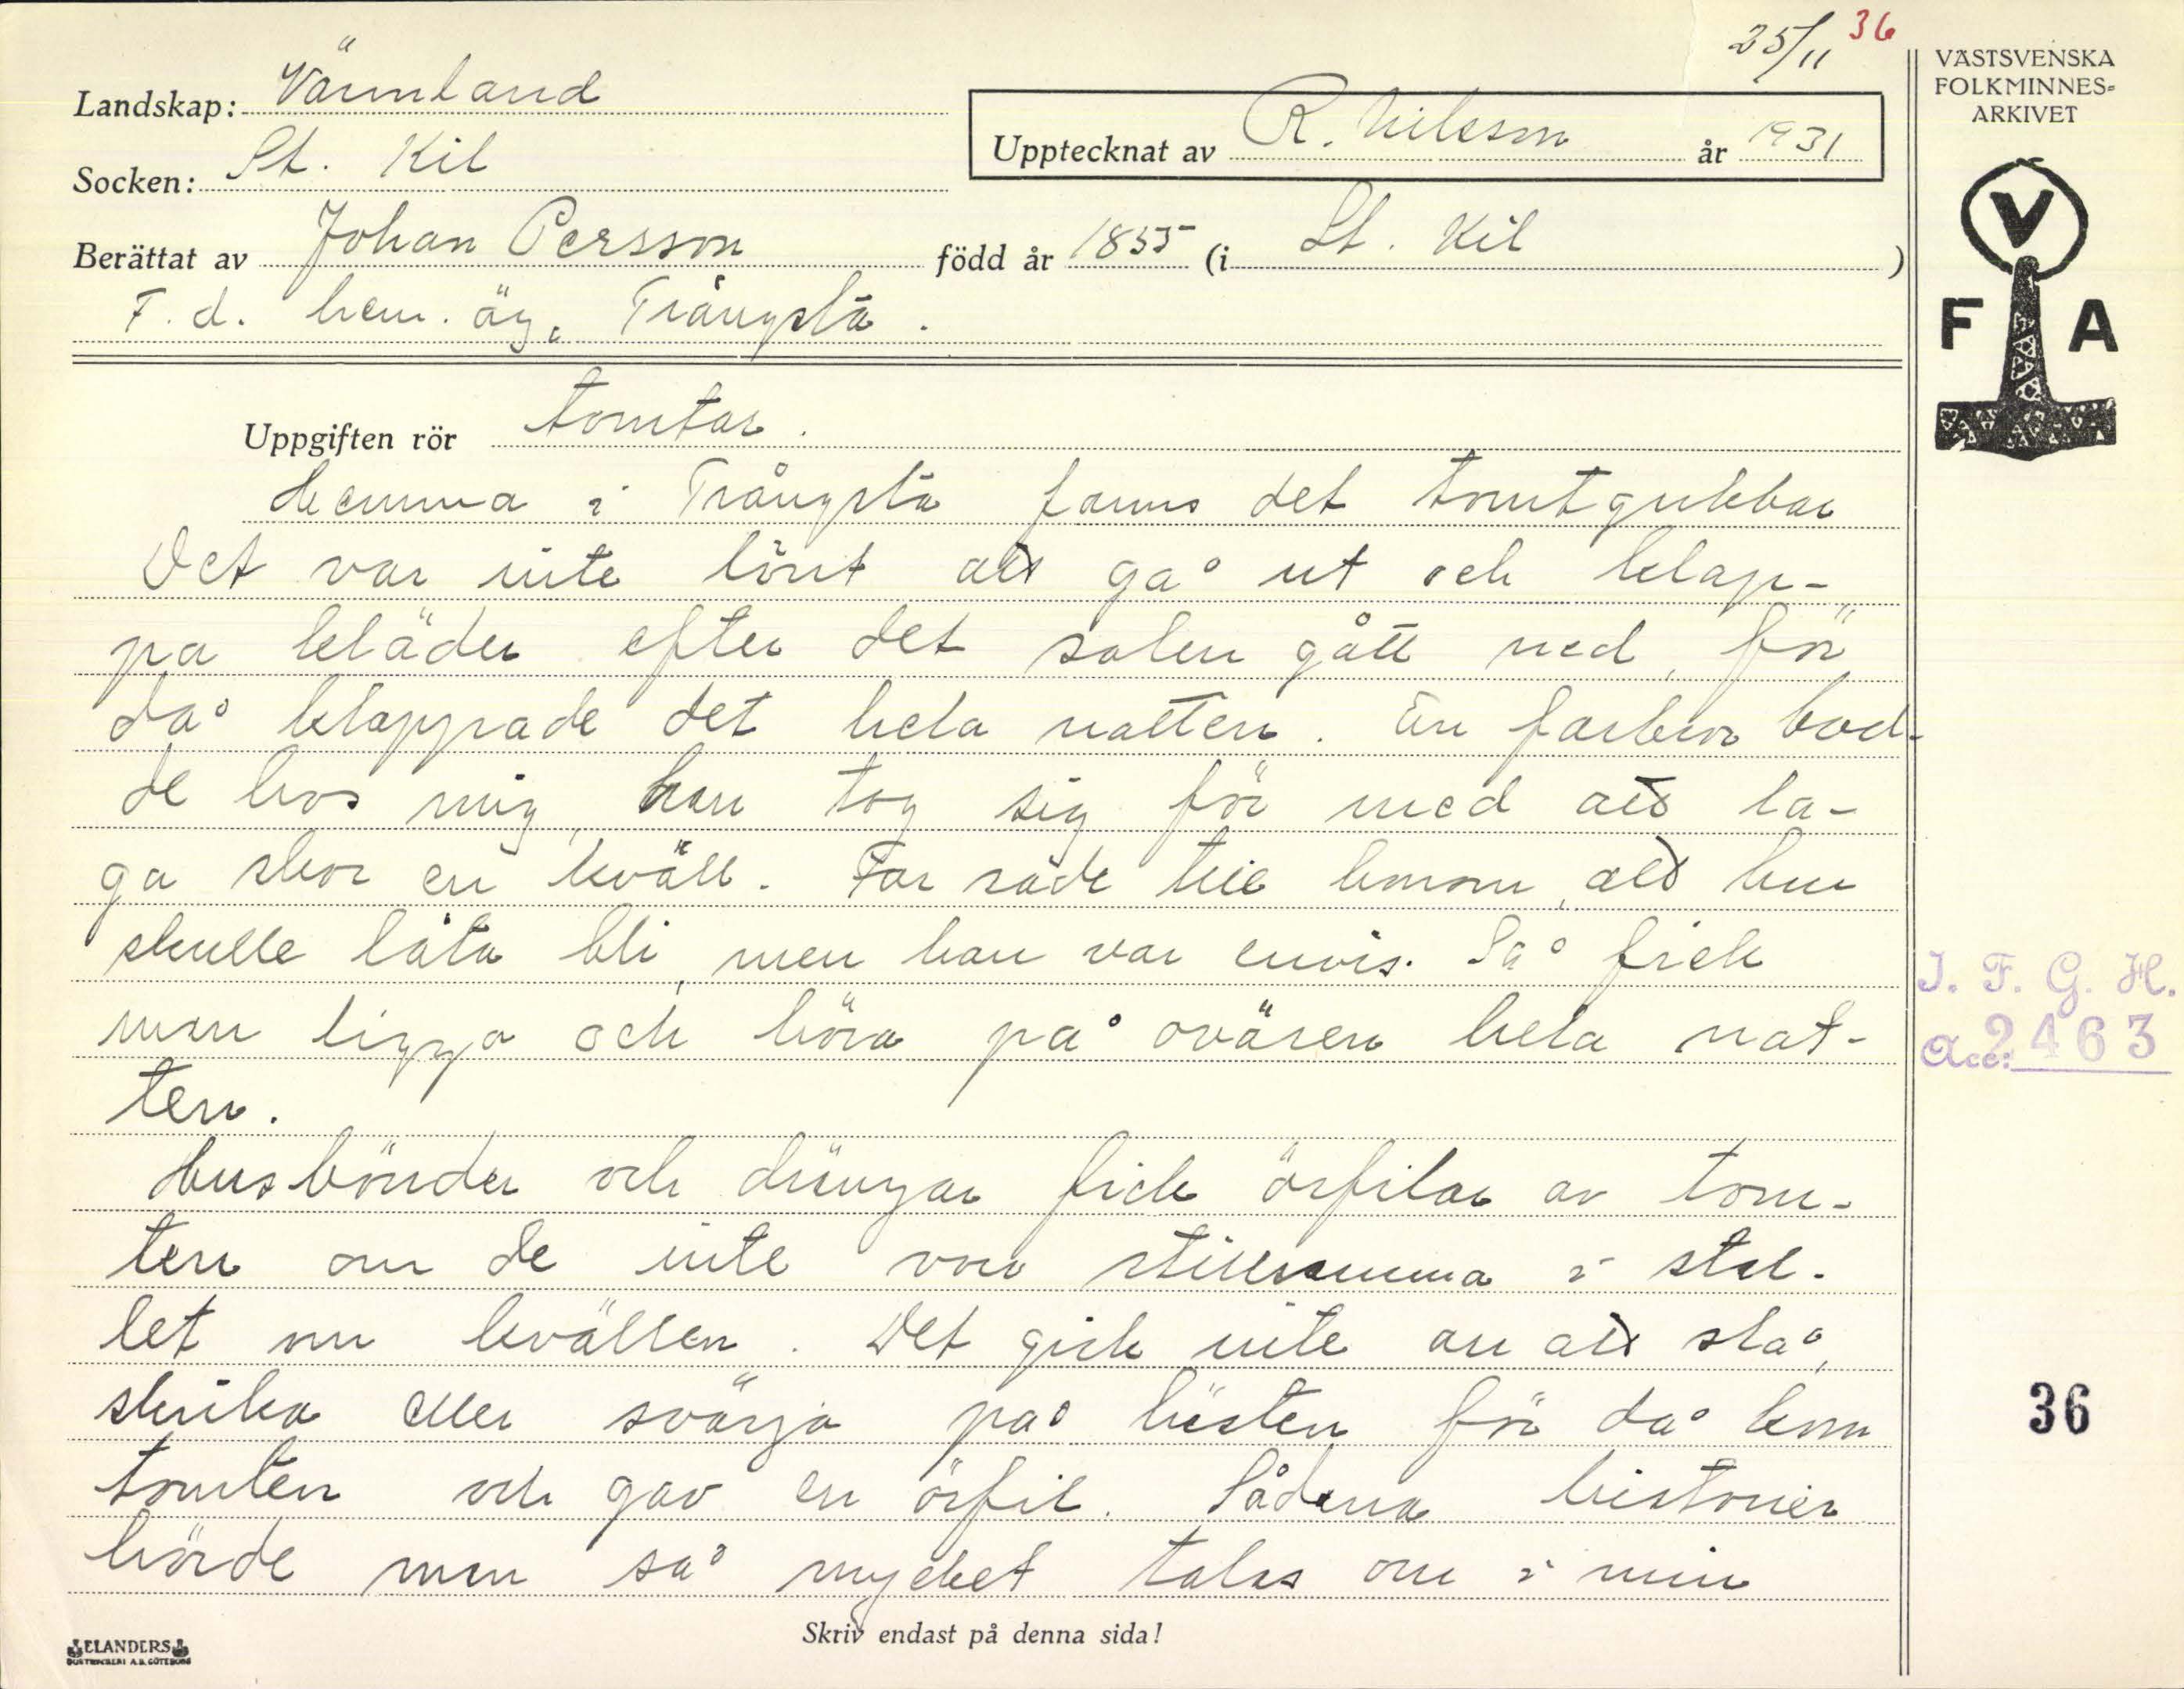 25/11 36
Landskap: Värmland
Socken: St. Kil
Upptecknat av R. Nilsson år 1931
Berättat av Johan Persson född år 1855 (i St. Kil)
F.d. hem. äg. Trångstä.
Uppgiften rör tomtar.
Hemma i Trångstä fanns det tomtgubbar
Det var inte lönt att gå ut och klap-
pa kläder efter det solen gått ned, för
då klappade det hela natten. En farbror bod-
de hos mig, han tog sig för med att la-
ga skor en kväll. Far sade till honom, att han
skulle låta bli, men han var envis. Så fick
man ligga och höra på oväsen hela nat-
ten.
Husbönder och drängar fick örfilar av tom-
ten om de inte voro stillsamma i stal-
let om kvällen. Det gick inte an att slå,
skrika eller svärja på hästen för då kom
tomten och gav en örfil. Sådana historier
hörde man så mycket talas om i min
Skriv endast på denna sida!
ELANDERS
BOKTRYCKERI A.B. GÖTEBORG
VÄSTSVENSKA
FOLKMINNES-
ARKIVET
V
F A
I. F. G. H.
Acc: 2463
36